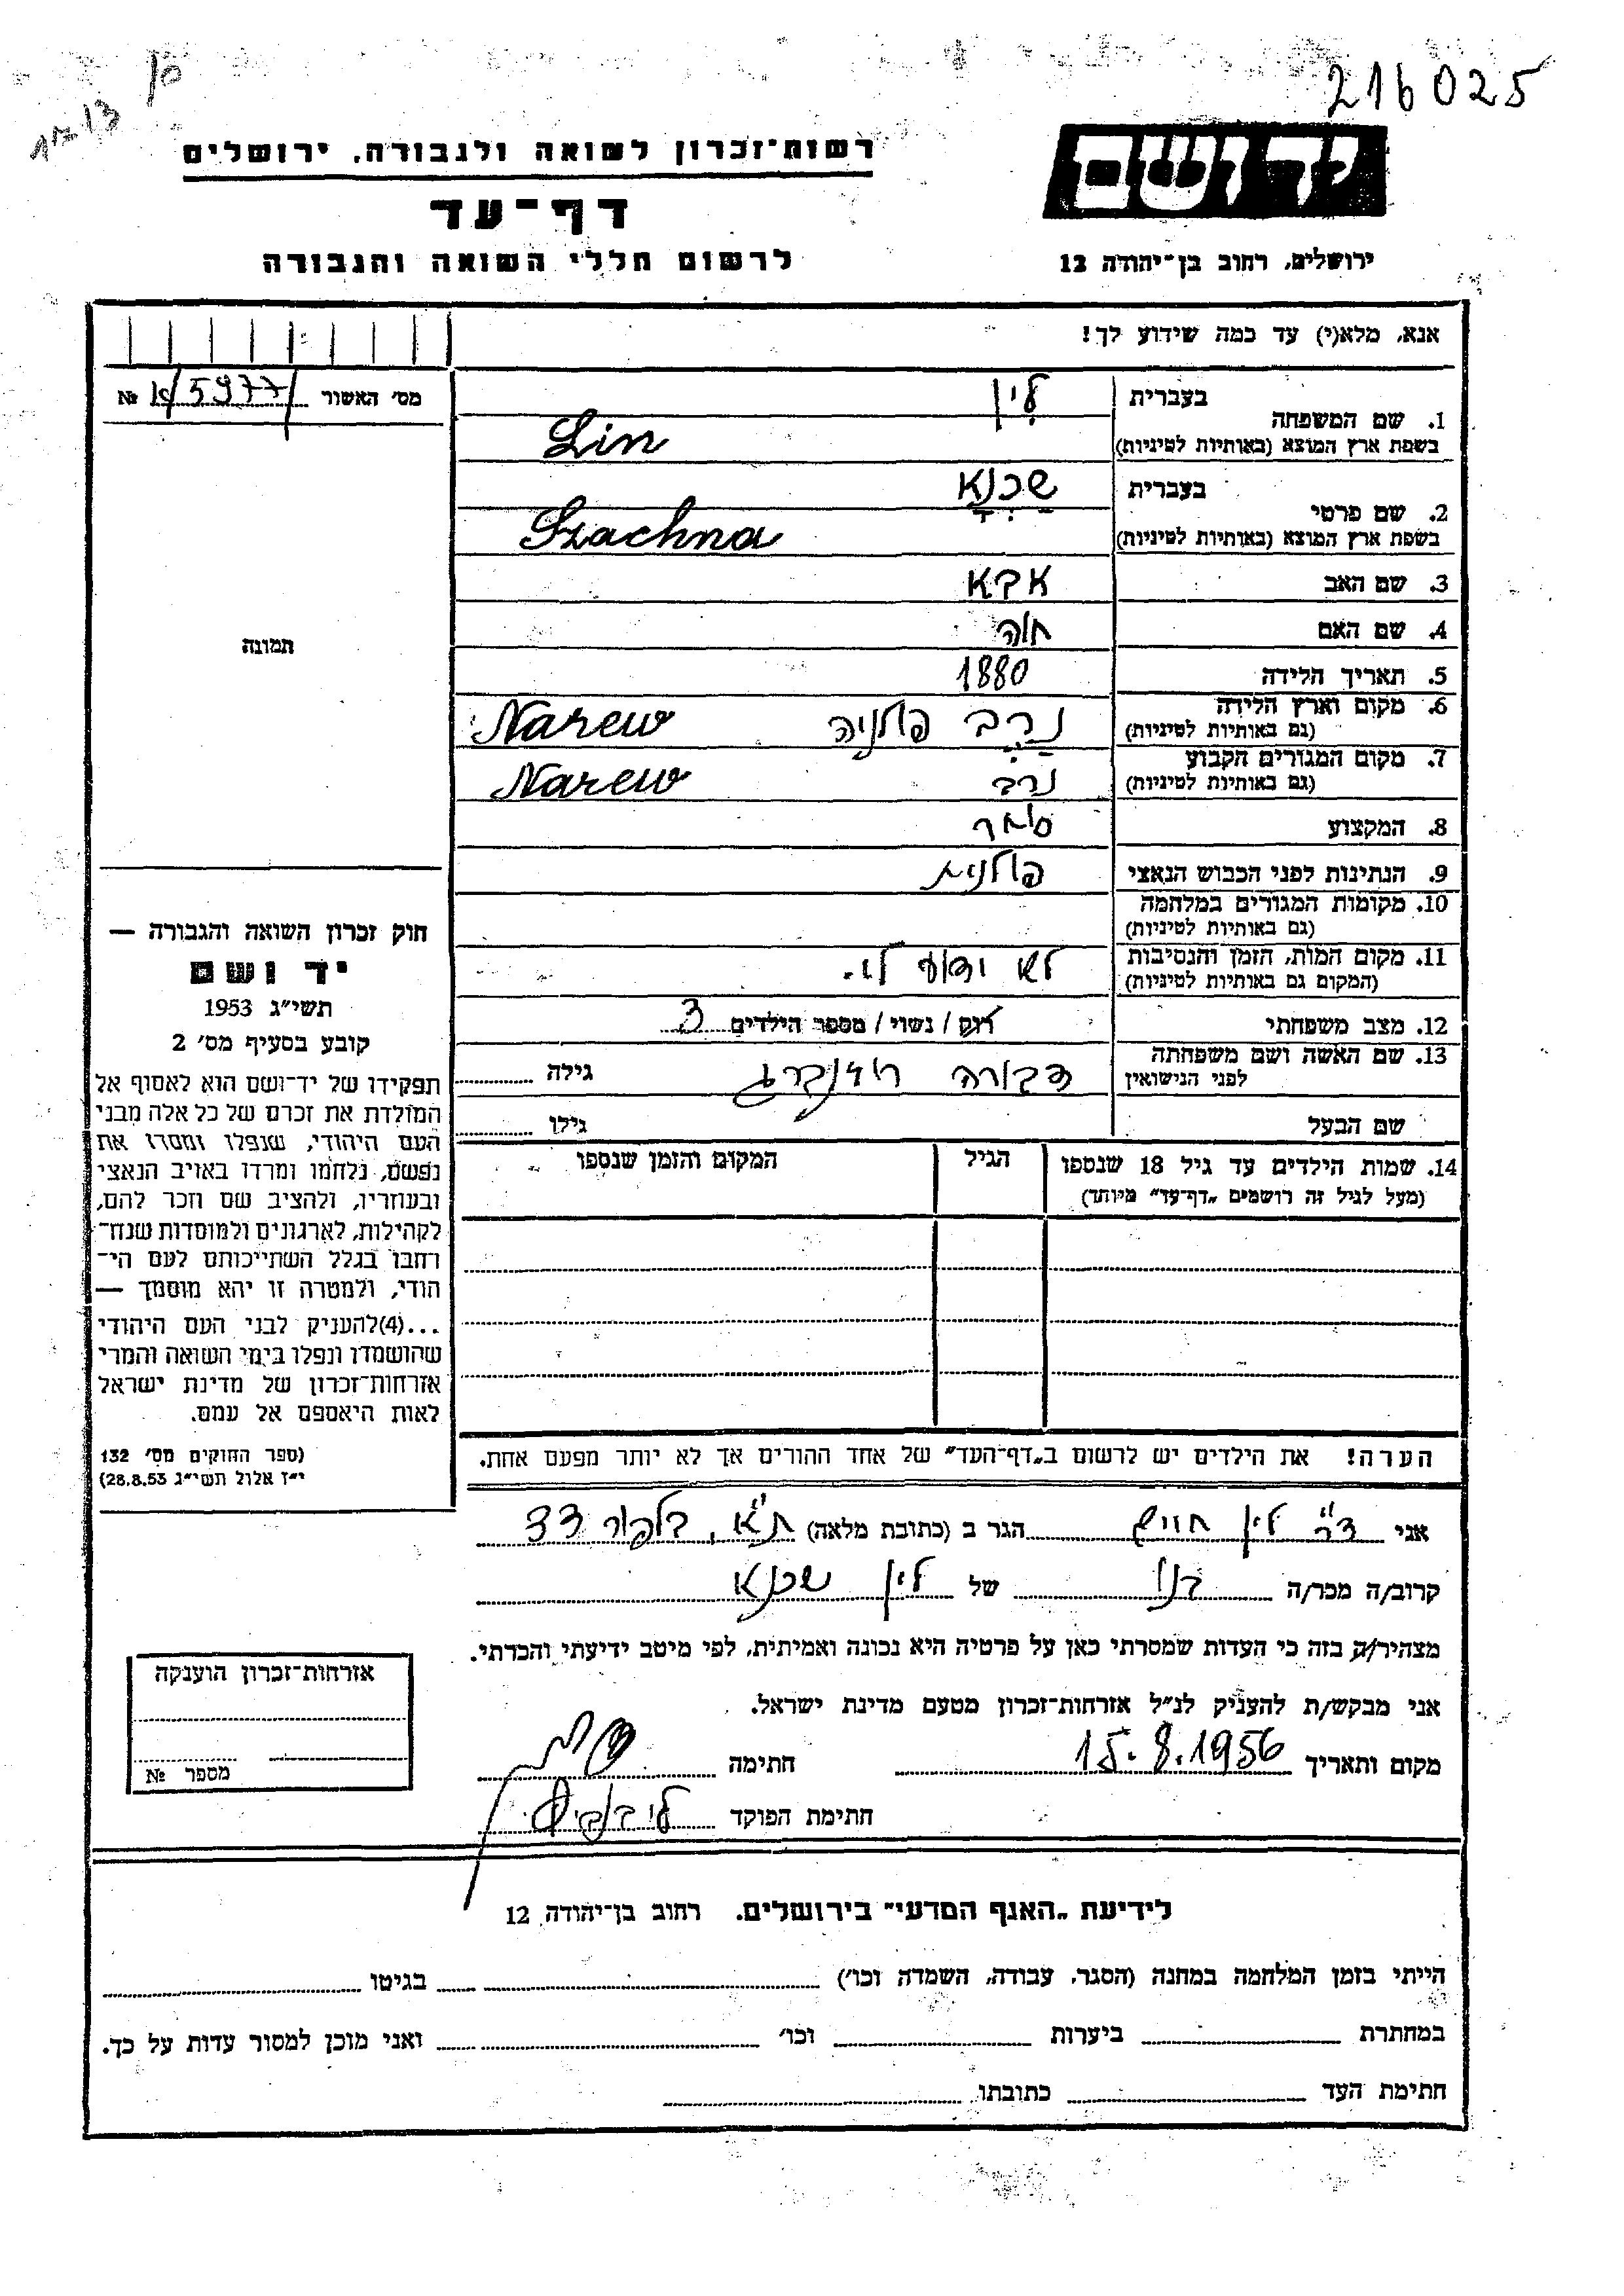 216025
10
13
רשות־זכרון לשואה ולגבורה, ירושלים
יד ושם
דף־עד
לרשום חללי השואה והגבורה
ירושלים, רחוב בן־יהודה 12
אנא, מלא(י) עד כמה שידוע לך!
מס׳ האשור 5977 №
1. שם המשפחה
בעברית לין
בשפת ארץ המוצא (באותיות לטיניות) Lin
2. שם פרטי
בעברית שכנא
בשפת ארץ המוצא (באותיות לטיניות) Szachna
3. שם האב אבא
4. שם האם חוה
5. תאריך הלידה 1880
6. מקום וארץ הלידה נרב פולניה Narew
(גם באותיות לטיניות)
7. מקום המגורים הקבוע נרב Narew
(גם באותיות לטיניות)
8. המקצוע סוחר
9. הנתינות לפני הכבוש הנאצי פולנית
10. מקומות המגורים במלחמה
(גם באותיות לטיניות)
11. מקום המות, הזמן והנסיבות לא ידוע לי.
(המקום גם באותיות לטיניות)
12. מצב משפחתי רוק / נשוי / מספר הילדים 3
13. שם האשה ושם משפחתה דבורה גילה
לפני הנישואין
שם הבעל גילו
14. שמות הילדים עד גיל 18 שנספו הגיל המקום והזמן שנספו
(מעל לגיל זה רושמים „דף־עד” מיוחד)
הערה! את הילדים יש לרשום ב„דף־העד” של אחד ההורים אך לא יותר מפעם אחת.
תמונה
חוק זכרון השואה והגבורה —
יד ושם
תשי״ג 1953
קובע בסעיף מס׳ 2
תפקידו של יד־ושם הוא לאסוף אל
המולדת את זכרם של כל אלה מבני
העם היהודי, שנפלו ומסרו את
נפשם, נלחמו ומרדו באויב הנאצי
ובעוזריו, ולהציב שם וזכר להם,
לקהילות, לארגונים ולמוסדות שנח־
רחבו בגלל השתייכותם לעם הי־
הודי, ולמטרה זו יהא מוסמך —
...(4)להעניק לבני העם היהודי
שהושמדו ונפלו בימי השואה והמרי
אזרחות־זכרון של מדינת ישראל
לאות היאספם אל עמם.
(ספר החוקים מס׳ 132
י״ז אלול תשי״ג 28.8.53)
אני ד״ר לין חיים הגר ב (כתובת מלאה) ת״א, בלפור 33
קרוב/ה מכר/ה בנו של לין שכנא
מצהיר/ה בזה כי העדות שמסרתי כאן על פרטיה היא נכונה ואמיתית, לפי מיטב ידיעתי והכרתי.
אני מבקש/ת להעניק לנ״ל אזרחות־זכרון מטעם מדינת ישראל.
מקום ותאריך 15.8.1956 חתימה
חתימת הפוקד
אזרחות־זכרון הוענקה
מספר №
לידיעת „האגף המדעי” בירושלים. רחוב בן־יהודה 12
הייתי בזמן המלחמה במחנה (הסגר, עבודה, השמדה וכו׳) בגיטו
במחתרת ביערות וכו׳ ואני מוכן למסור עדות על כך.
חתימת העד כתובתו